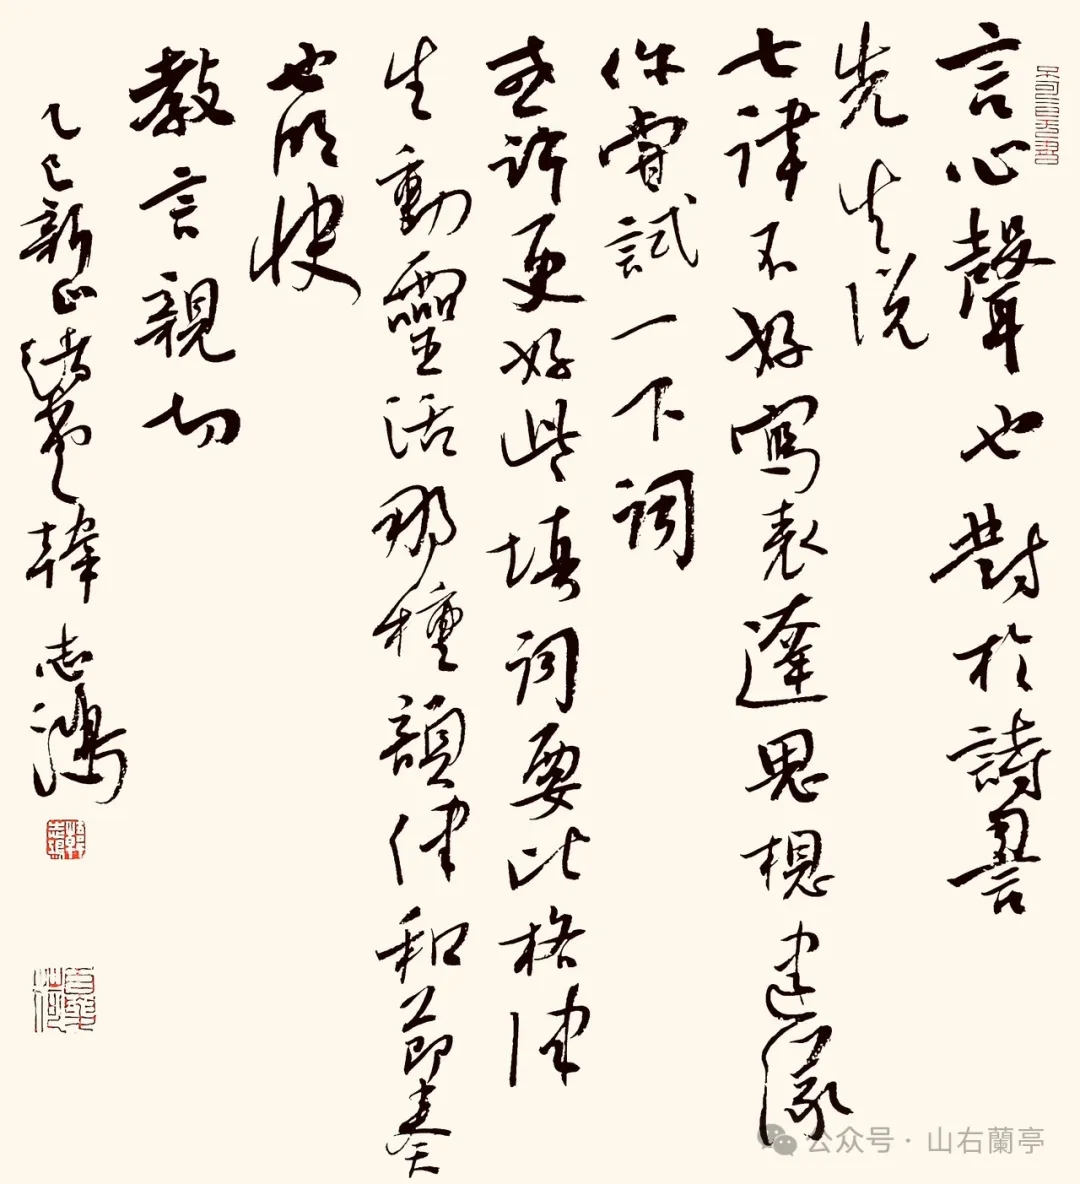 言心聲也對於詩詞
先生說
七律不好寫表達思想建議
你嘗試一下詞
或許更好些填詞要比格律
生動靈活那種韻律和節奏
也明快
教言親切
乙巳新正韓志鴻
公众号 · 山右蘭亭